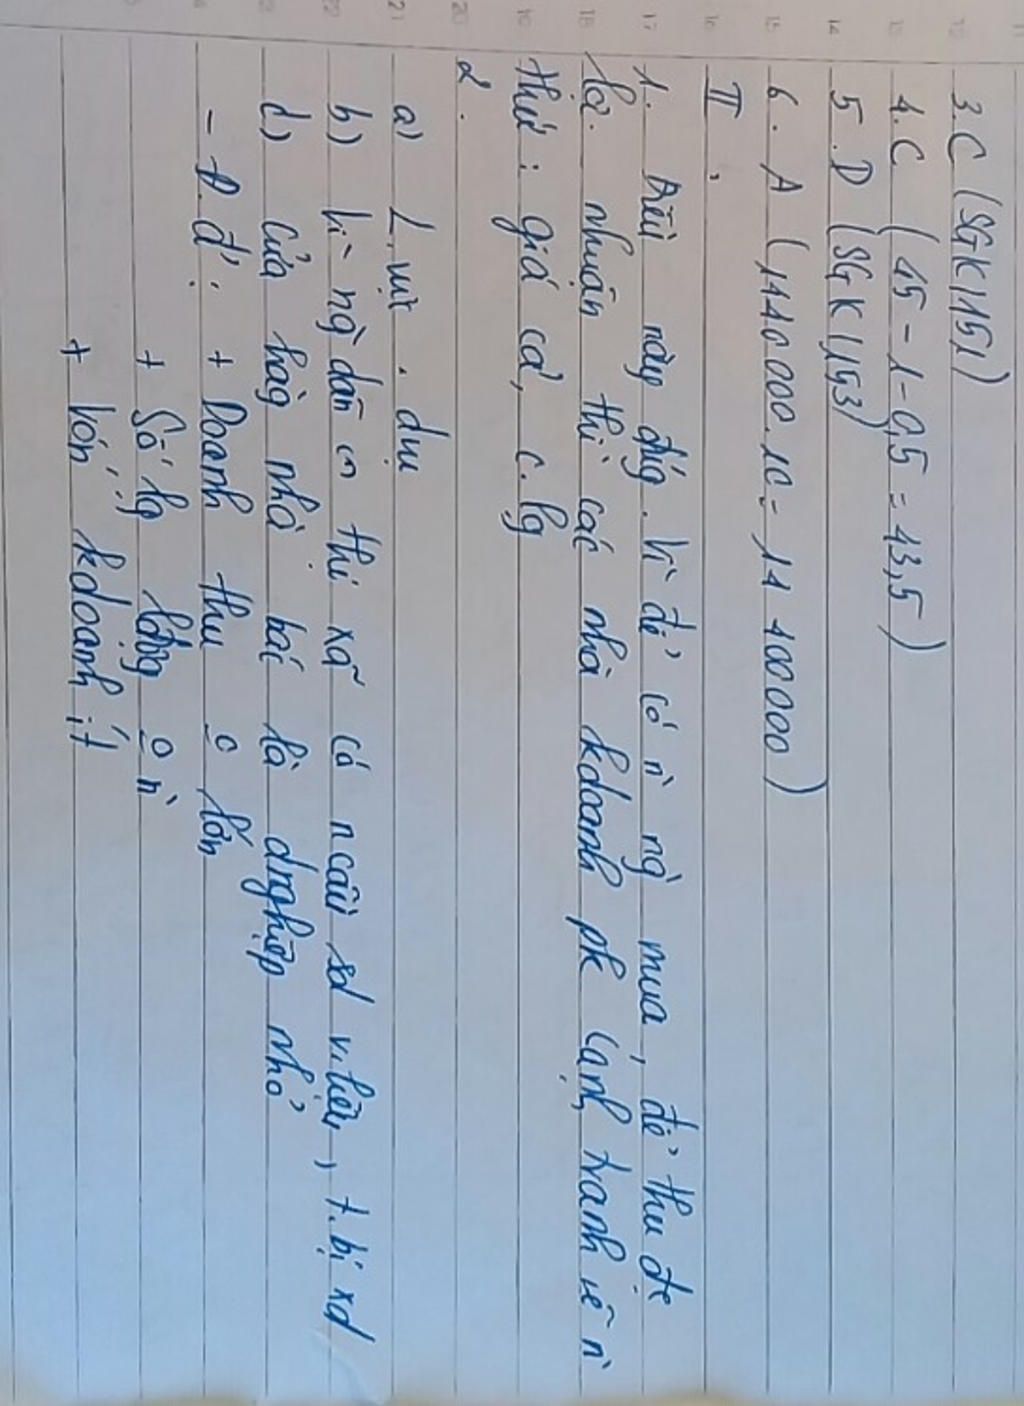 3. C (SGK/151)
4. C (45 - 1 - 0,5 = 43,5)
5. D (SGK/153)
6. A (1440 000.10 = 14 400000)
II,
1. Điều này đúg. Vì để có n` ng` mua, để thu đc
lợi nhuận thì các nhà kdoanh pk cạnh tranh về n`
thứ: giá cả, c.lg
2.
a) L.vực. dvụ
b) Vì ng` dân ở thị xã có n cầu sd v.liệu, t.bị xd
c) Cửa hàg nhà bác là dnghiệp nhỏ
- Đ.đ': + Doanh thu o lớn
+ Số lg lđộg o n`
+ Vốn kdoanh ít